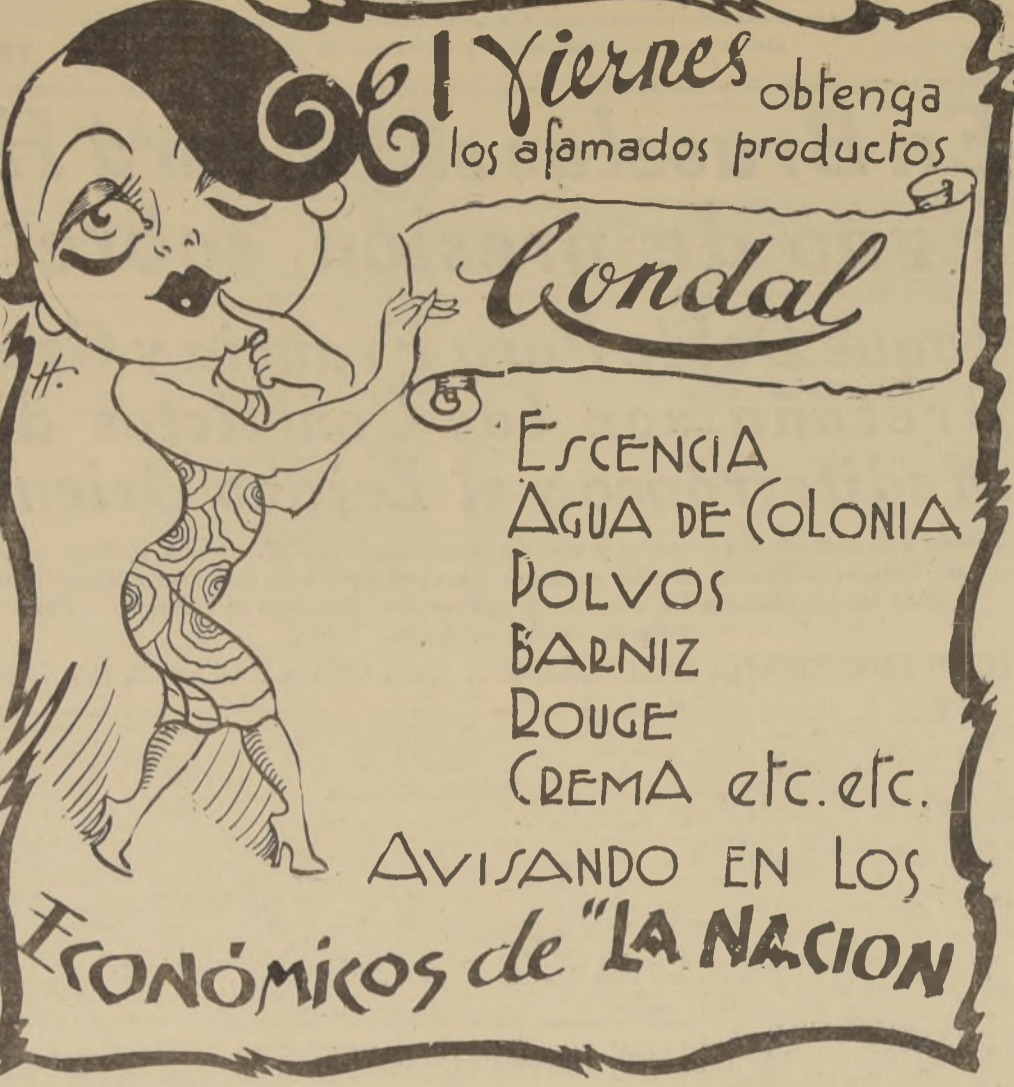 El Viernes obtenga
los afamados productos
Condal
H.
ESCENCIA
AGUA DE COLONIA
POLVOS
BARNIZ
ROUGE
CREMA etc. etc.
AVISANDO EN LOS
ECONÓMICOS de "LA NACION